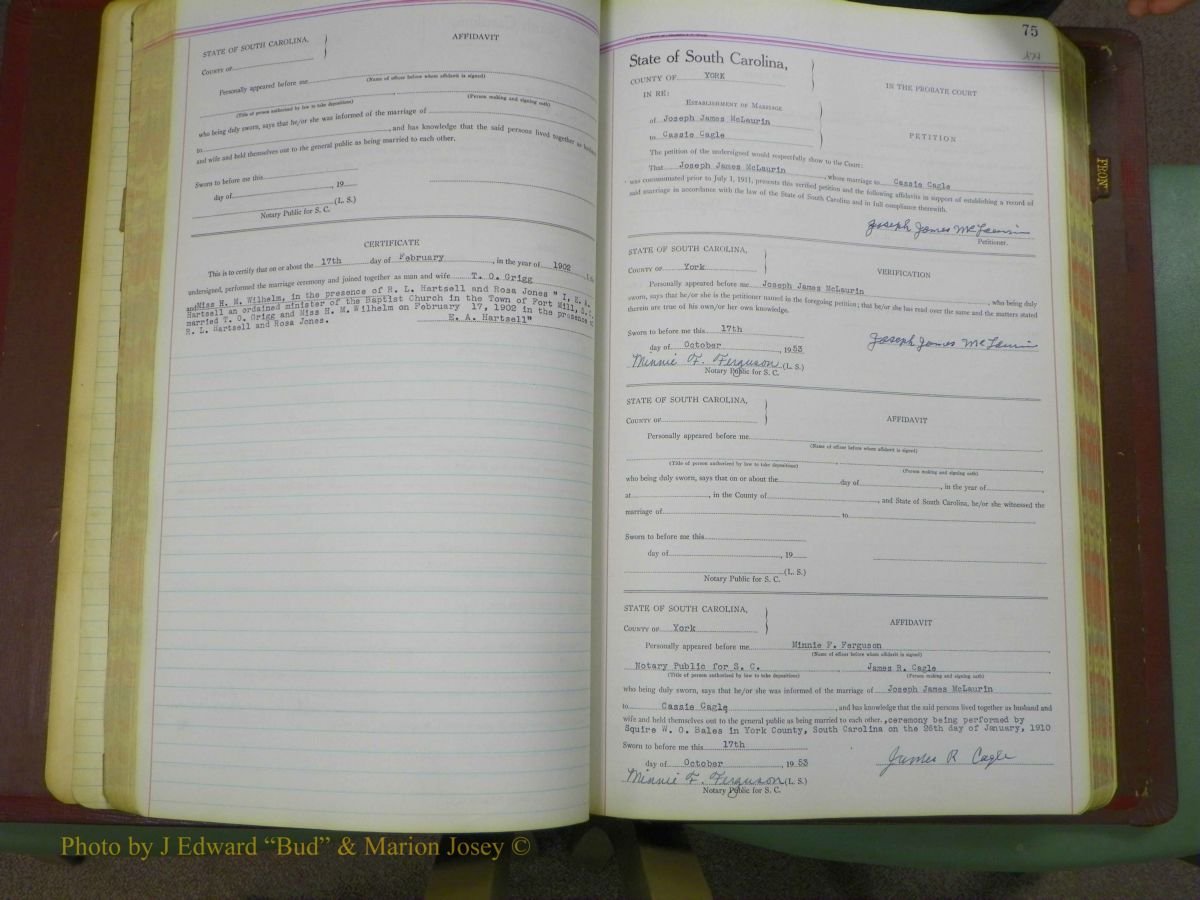 STATE OF SOUTH CAROLINA,
AFFIDAVIT
COUNTY OF
Personally appeared before me
(Name of officer before whom affidavit is signed)
(Title of person authorized by law to take depositions) (Person making and signing oath)
who being duly sworn, says that he/or she was informed of the marriage of
to , and has knowledge that the said persons lived together as
and wife and held themselves out to the general public as being married to each other.
Sworn to before me this
day of , 19
(L. S.)
Notary Public for S. C.
CERTIFICATE
This is to certify that on or about the 17th day of February , in the year of 1902
undersigned, performed the marriage ceremony and joined together as man and wife T. O. Grigg
and Miss H. M. Wilhelm, in the presence of R. L. Hartsell and Rosa Jones " I, E. A.
Hartsell an ordained minister of the Baptist Church in the Town of Fort Mill, S. C.
married T. O. Grigg and Miss H. M. Wilhelm on February 17, 1902 in the presence of
R. L. Hartsell and Rosa Jones. E. A. Hartsell"
75
State of South Carolina,
COUNTY OF YORK
IN THE PROBATE COURT
IN RE:
ESTABLISHMENT OF MARRIAGE
of Joseph James McLaurin
PETITION
to Cassie Cagle
The petition of the undersigned would respectfully show to the Court:
That Joseph James McLaurin , whose marriage to Cassie Cagle
was consummated prior to July 1, 1911, presents this verified petition and the following affidavits in support of establishing a record of
said marriage in accordance with the law of the State of South Carolina and in full compliance therewith.
Joseph James McLaurin
Petitioner.
STATE OF SOUTH CAROLINA,
COUNTY OF York
VERIFICATION
Personally appeared before me Joseph James McLaurin , who being duly
sworn, says that he/or she is the petitioner named in the foregoing petition; that he/or she has read over the same and the matters stated
therein are true of his own/or her own knowledge.
Sworn to before me this 17th
day of October , 1953
Joseph James McLaurin
Minnie F. Ferguson (L. S.)
Notary Public for S. C.
STATE OF SOUTH CAROLINA,
AFFIDAVIT
COUNTY OF
Personally appeared before me
(Name of officer before whom affidavit is signed)
(Title of person authorized by law to take depositions) (Person making and signing oath)
who being duly sworn, says that on or about the day of , in the year of
at , in the County of , and State of South Carolina, he/or she witnessed the
marriage of to
Sworn to before me this
day of , 19
(L. S.)
Notary Public for S. C.
STATE OF SOUTH CAROLINA,
AFFIDAVIT
COUNTY OF York
Personally appeared before me Minnie F. Ferguson
(Name of officer before whom affidavit is signed)
Notary Public for S. C. James R. Cagle
(Title of person authorized by law to take depositions) (Person making and signing oath)
who being duly sworn, says that he/or she was informed of the marriage of Joseph James McLaurin
to Cassie Cagle , and has knowledge that the said persons lived together as husband and
wife and held themselves out to the general public as being married to each other. ,ceremony being performed by
Squire W. O. Bales in York County, South Carolina on the 26th day of January, 1910
Sworn to before me this 17th
day of October , 1953
James R Cagle
Minnie F. Ferguson (L. S.)
Notary Public for S. C.
Photo by J Edward "Bud" & Marion Josey ©